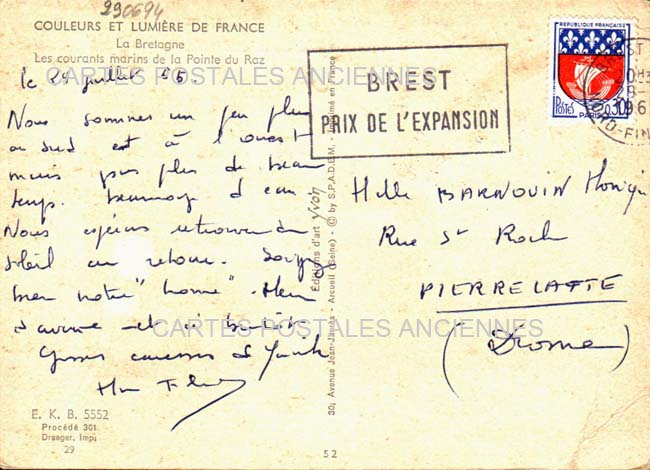 230694
COULEURS ET LUMIÈRE DE FRANCE
La Bretagne
Les courants marins de la Pointe du Raz
CARTES POSTALES ANCIENNES
le juillet 65
Nous sommes un peu plus
au sud est à l'ouest
mais pas plus de beau
temps. beaucoup d'eau.
Nous espérons retrouver du
soleil au retour. Soigne
bien notre "home". Merci
d'avance et à bientôt
CARTES POSTALES ANCIENNES
Grosses caresses à
E. K. B. 5552
Procédé 301
Draeger, Imp.
29
Éditions d'art Yvon
30, Avenue Jean-Jaurès - Arcueil (Seine) - © by S.P.A.D.E.M. - Imprimé en France
52
BREST
PRIX DE L'EXPANSION
REPUBLIQUE FRANÇAISE
POSTES
PARIS
0,30
BREST
NORD-FIN
Melle BARNOUIN Monique
Rue St Roch
PIERRELATTE
(Drome)